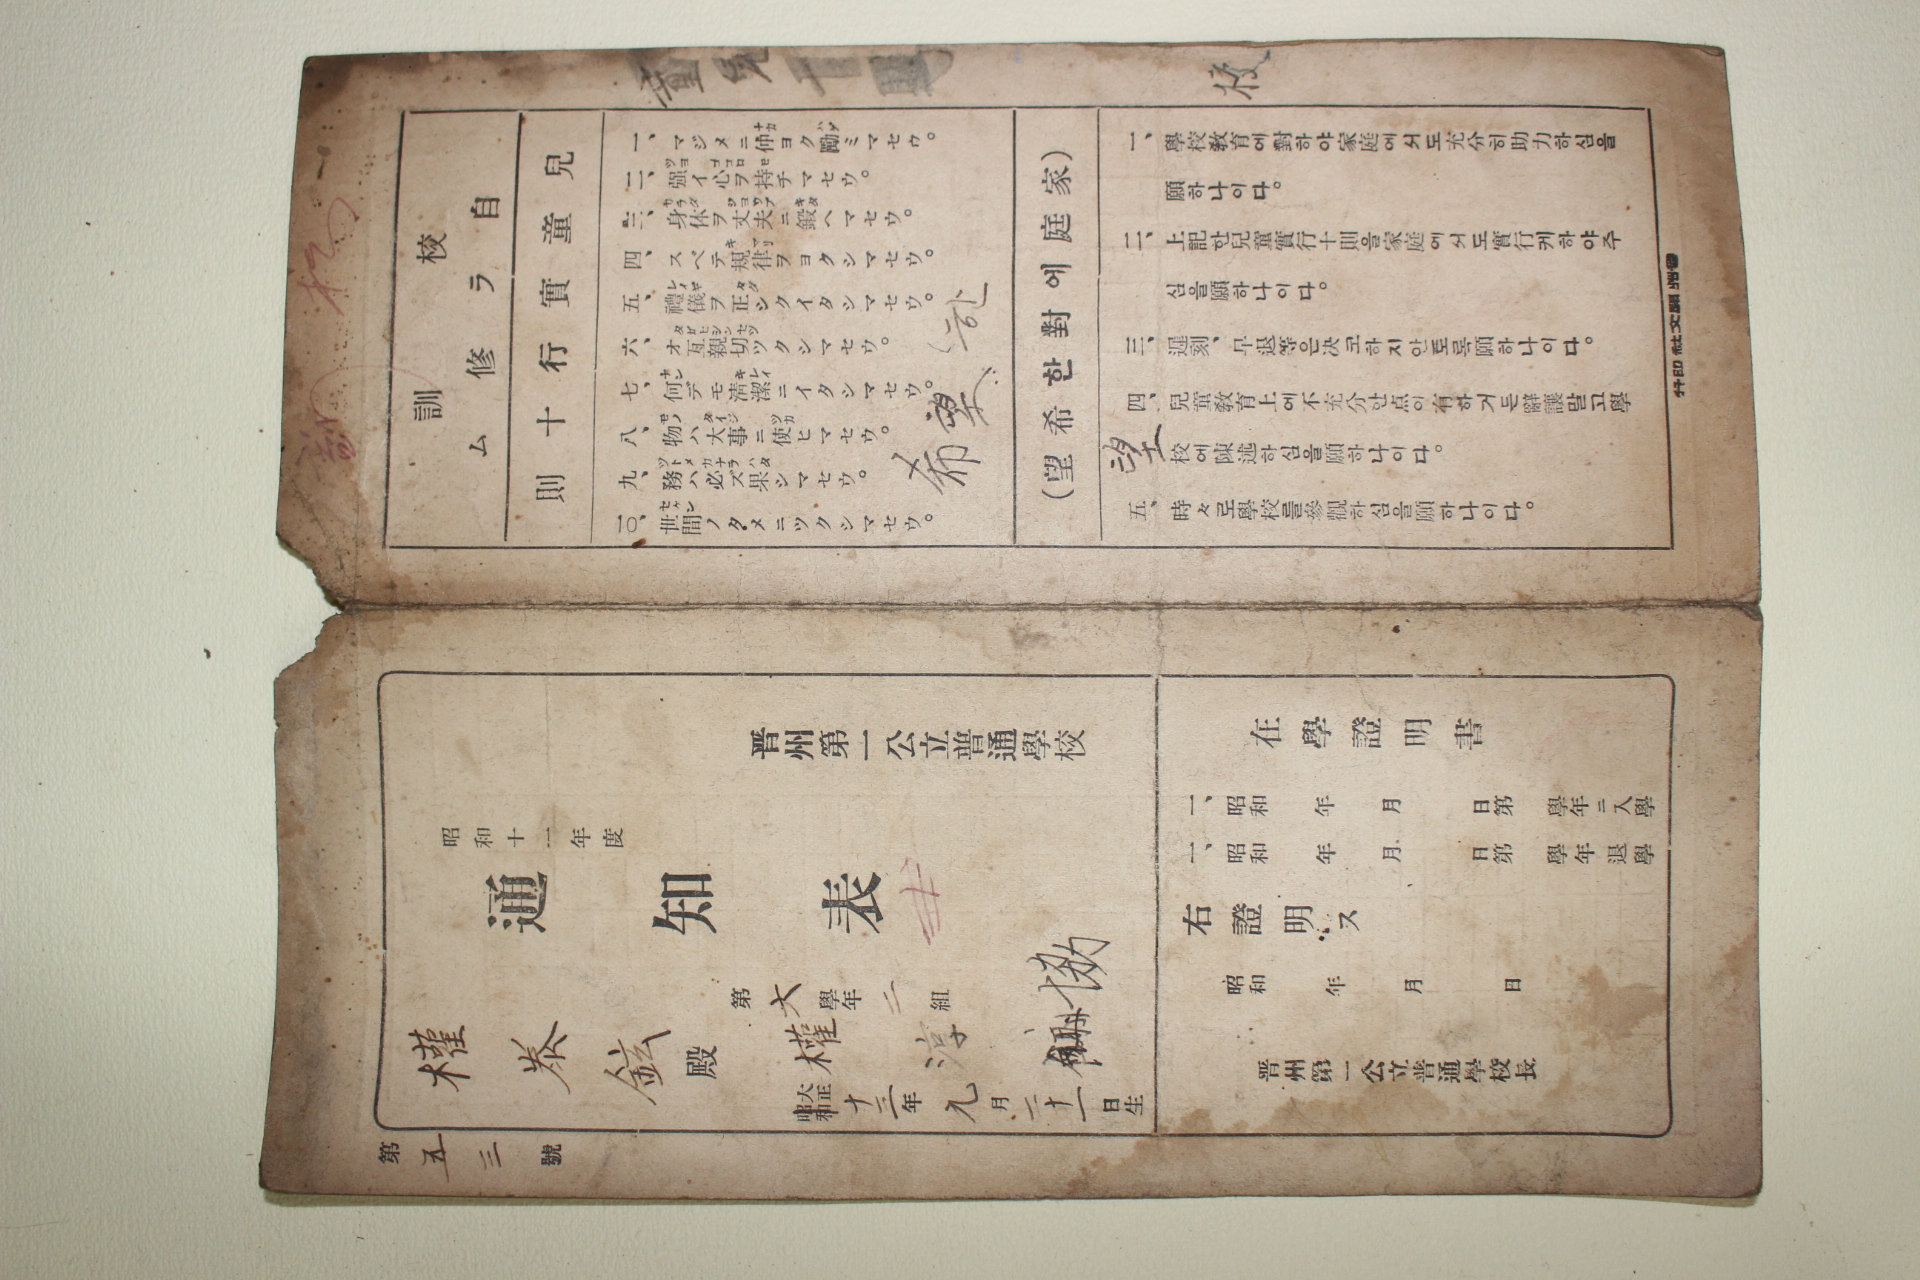 校訓
自ラ修ム
兒童實行十則
一、マジメニ仲ヨク勵ミマセウ。
二、强イ心ヲ持チマセウ。
三、身体ヲ丈夫ニ鍛ヘマセウ。
四、スベテ規律ヲヨクシマセウ。
五、禮儀ヲ正シクイタシマセウ。
六、オ互親切ツクシマセウ。
七、何デモ清潔ニイタシマセウ。
八、物ハ大事ニ使ヒマセウ。
九、務ハ必ズ果シマセウ。
一〇、世間ノタメニツクシマセウ。
希望
(家庭에對한希望)
校
一、學校敎育에對하야家庭에서도充分히助力하심을
願하나이다。
二、上記한兒童實行十則을家庭에서도實行케하야주
심을願하나이다。
三、遲刻、早退等은決코하지안토록願하나이다。
四、兒童敎育上에不充分한点이有하거든辭讓말고學
校에陳述하심을願하나이다。
五、時々로學校를參觀하심을願하나이다。
望
晋州開文社印行
晋州第一公立普通學校
昭和十一年度
通知表
第六學年二組
權泰鉉殿
權淳
大正
昭和
十三年九月二十一日生
第五三號
在學證明書
一、昭和 年 月 日第 學年ニ入學
一、昭和 年 月 日第 學年退學
右證明ス
昭和 年 月 日
晋州第一公立普通學校長